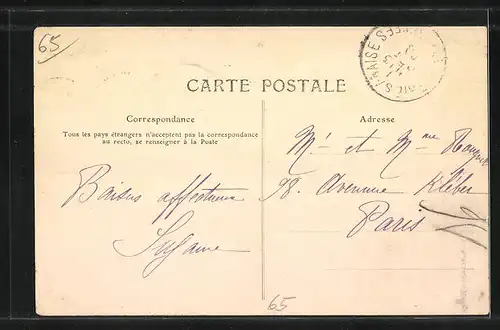 65
CARTE POSTALE
Correspondance
Tous les pays étrangers n'acceptent pas la correspondance
au recto, se renseigner à la Poste
Baisers affectueux
Suzanne
Adresse
Mr et Mme
98. Avenue Kléber
Paris
65